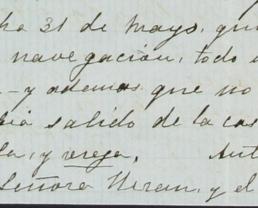 31 de mayo, que
navegación, todo
y ademas, que no
salido de la cas
y vieja. Aut
Señora Teran, y el